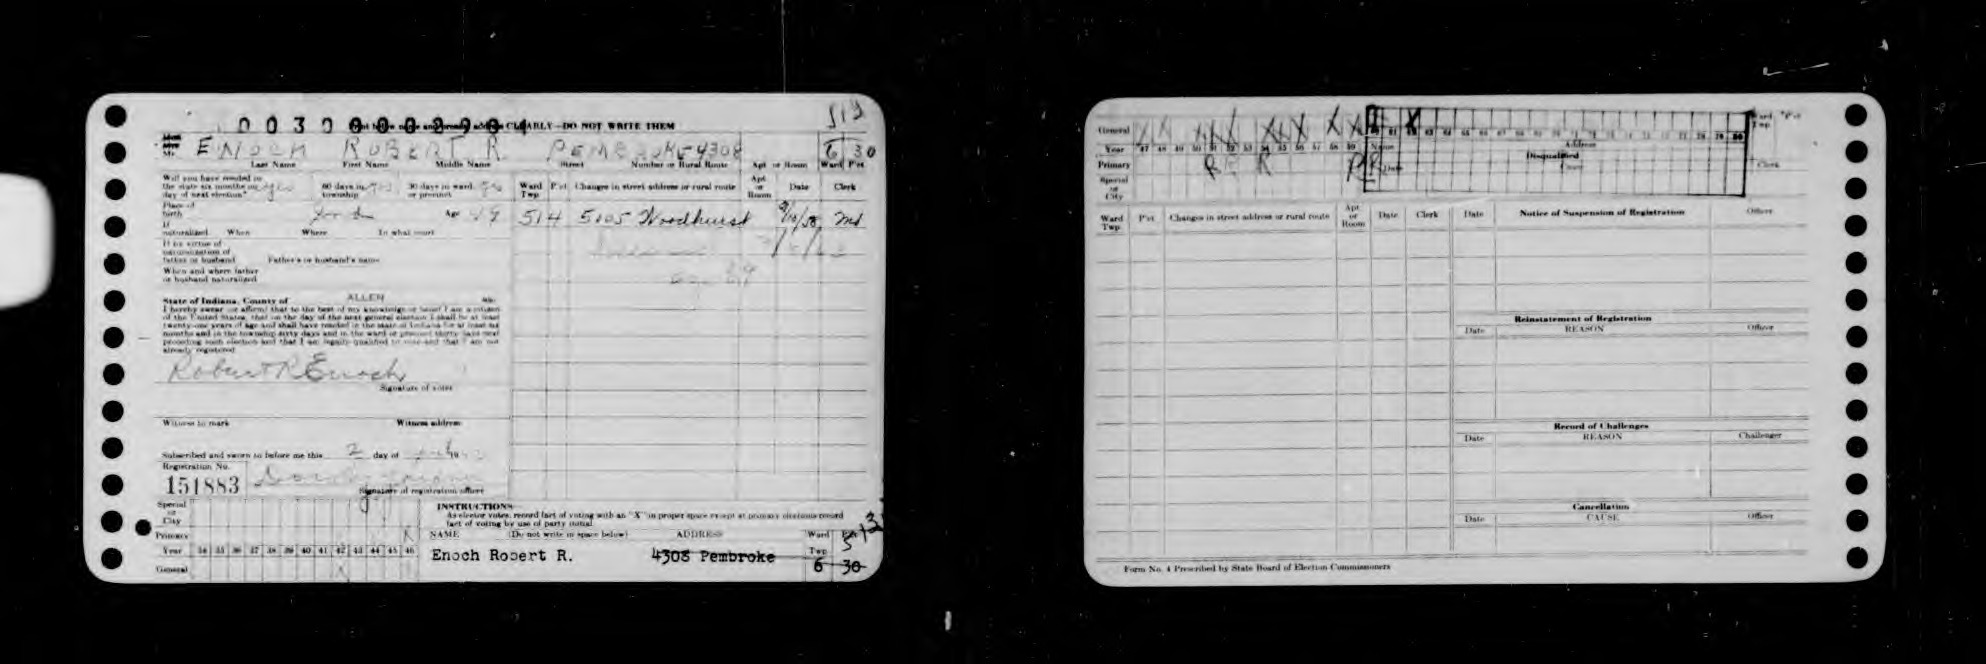 512
0030000290
Print below name and present address CLEARLY—DO NOT WRITE THEM
Mr. ENOCH ROBERT R. PEMBROKE 4308 6 30
Last Name First Name Middle Name Street Number or Rural Route Apt or Room Ward P'ct
Will you have resided in the state six months on day of next election? yes 60 days in township yes 30 days in ward or precinct yes
Ward Twp P'ct Changes in street address or rural route Apt or Room Date Clerk
Place of birth Ind Age 49
514 5105 Woodhurst 9/10/58 Md
If naturalized When Where In what court
If by virtue of naturalization of father or husband Father's or husband's name
When and where father or husband naturalized
State of Indiana, County of ALLEN ss:
I hereby swear (or affirm) that to the best of my knowledge or belief I am a citizen
of the United States, that on the day of the next general election I shall be at least
twenty-one years of age and shall have resided in the state of Indiana for at least six
months and in the township sixty days and in the ward or precinct thirty days next
preceding such election and that I am legally qualified to vote and that I am not
already registered
Robert R Enoch
Signature of voter
Witness to mark Witness address
Subscribed and sworn to before me this 2 day of
Registration No.
151883
Signature of registration officer
Special or City
Primary R
Year 34 35 36 37 38 39 40 41 42 43 44 45 46
General X
INSTRUCTIONS
As elector votes, record fact of voting with an "X" in proper space except at primary elections record
fact of voting by use of party initial
NAME (Do not write in space below) ADDRESS Ward P'ct
Twp
Enoch Robert R. 4308 Pembroke 6 30
513
General X X X X X X X X X X X
Year 47 48 49 50 51 52 53 54 55 56 57 58 59 60 61 62 63 64 65 66 67 68 69 70 71 72 73 74 75 76 77 78 79 80
Ward Twp P'ct
Name Address
Primary R R R R R
Disqualified
Date Cause Clerk
Special or City
Ward Twp P'ct Changes in street address or rural route Apt or Room Date Clerk
Date Notice of Suspension of Registration Officer
Reinstatement of Registration
Date REASON Officer
Record of Challenges
Date REASON Challenger
Cancellation
Date CAUSE Officer
Form No. 4 Prescribed by State Board of Election Commissioners